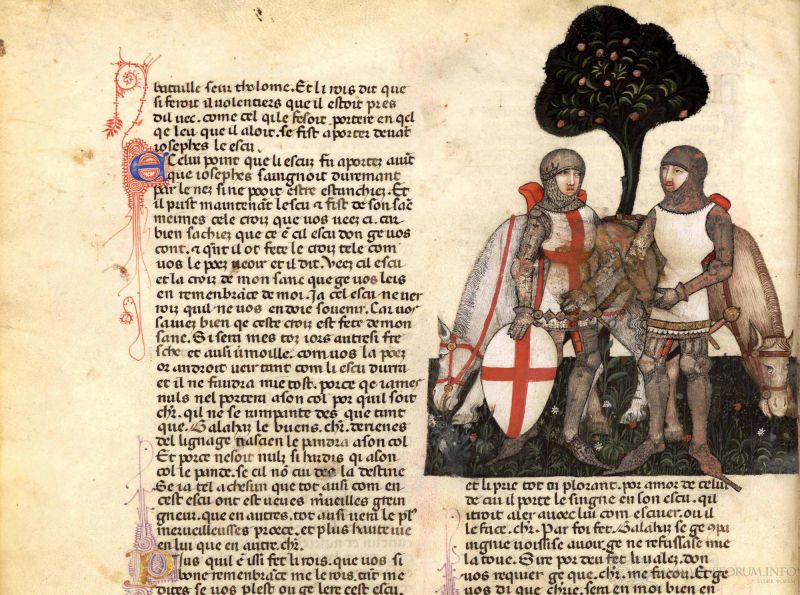 bataille seur tholome. Et li rois dit que
si feroit il uolentiers que il estoit pres
dil uec. come cel qi le fesoit porteir en qel
qe leu que il aloit. se fist aporter deuãt
iosephes le escu.
E Celui point que li escuz fu aportez auãt
que iosephes saingnoit duremant
par le nez si ne pooit estre estanchiez. Et
il prist maintenãt lescu & fist de son sãc
meimes cele croiz que uos ueez ci. car
bien sachiez que ce ẽ cil escu don ge uos
cont. & qñt il ot fete la croiz tele com
uos la poez ueoir et il dit. Veez cil escu
et la croiz de mon sanc que ge uos leis
en remenbrãce de moi. Ja cel escu ne uer
roiz quil ne uos en doie souenir. Car uos
sauez bien qe ceste croiz est fete de mon
sanc. Si sera mes toz iorz autresi fre
sche et ausi uermoille. com uos la poez
or androit ueir tant com li escu durra
et il ne faudra mie tost. porce qe iames
nuls nel portera a son col por quil soit
chr. qil ne se rampante des que tant
que. Galahaz le buens. chr. derienes
del lignage nasciẽ le pandra a son col
Et porce ne soit nulz si hardis qi a son
col le pande. se cil nõ cui deo la destine
Se ia tel acheisun que tot ausi com en
cest escu ont est ueues m̃ueilles grein
gneur. que en autres. tot ausi uerra le pl᷒
merueilleusses proece. et plus haute uie
en lui que en autre. chr.
Plus quil ẽ issi fet li rois. que uos si
bone remenbrãce me le rois. tãt me
dites se uos plest ou ge lere cest escu.
et li prie tot en plorant. por amor de celui
de cui il porte le singne en son escu. qu
il loit aler auoec lui com escuier. ou il
le face. chr. Par foi fet. Galahaz se ge
uosisse auoir. ge ne refussase mie
la uoe. Sire por deu fet li ualez. don
uos requier ge que. chr. me facoiz. Et ge
uos di que chr. sera en moi bien en